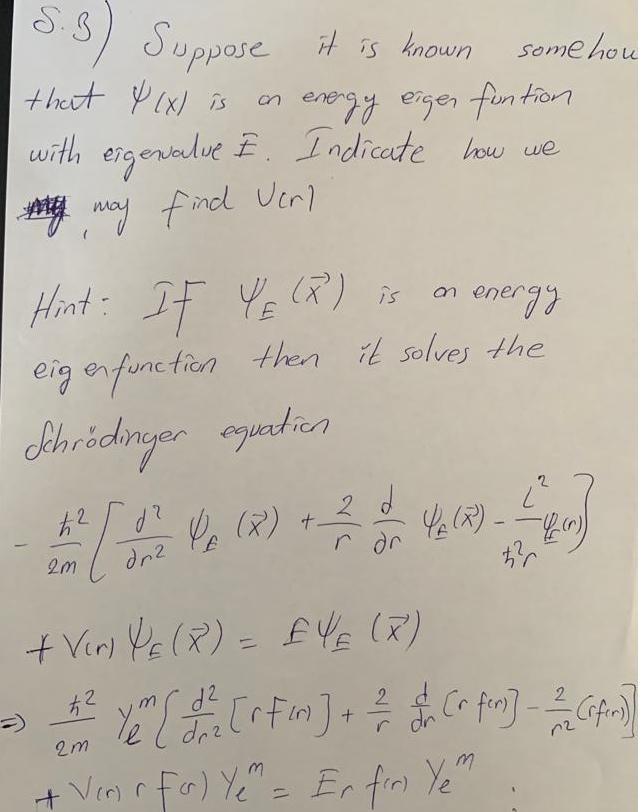 5.3) Suppose it is known somehow
that Ψ(x) is an energy eigen funtion
with eigenvalue E. Indicate how we
may find V(r)
Hint: IF Ψ_E (x⃗) is an energy
eigenfunction then it solves the
Schrödinger equation
- ħ²/2m [ d²/dr² Ψ_E (x⃗) + 2/r d/dr Ψ_E (x⃗) - L²/ħ²r Ψ_E(r) ]
+ V(r) Ψ_E (x⃗) = E Ψ_E (x⃗)
=> ħ²/2m Y_e^m [ d²/dr² [r F(r)] + 2/r d/dr [r f(r)] - 2/r² (r f(r)) ]
+ V(r) r F(r) Y_e^m = E r f(r) Y_e^m .